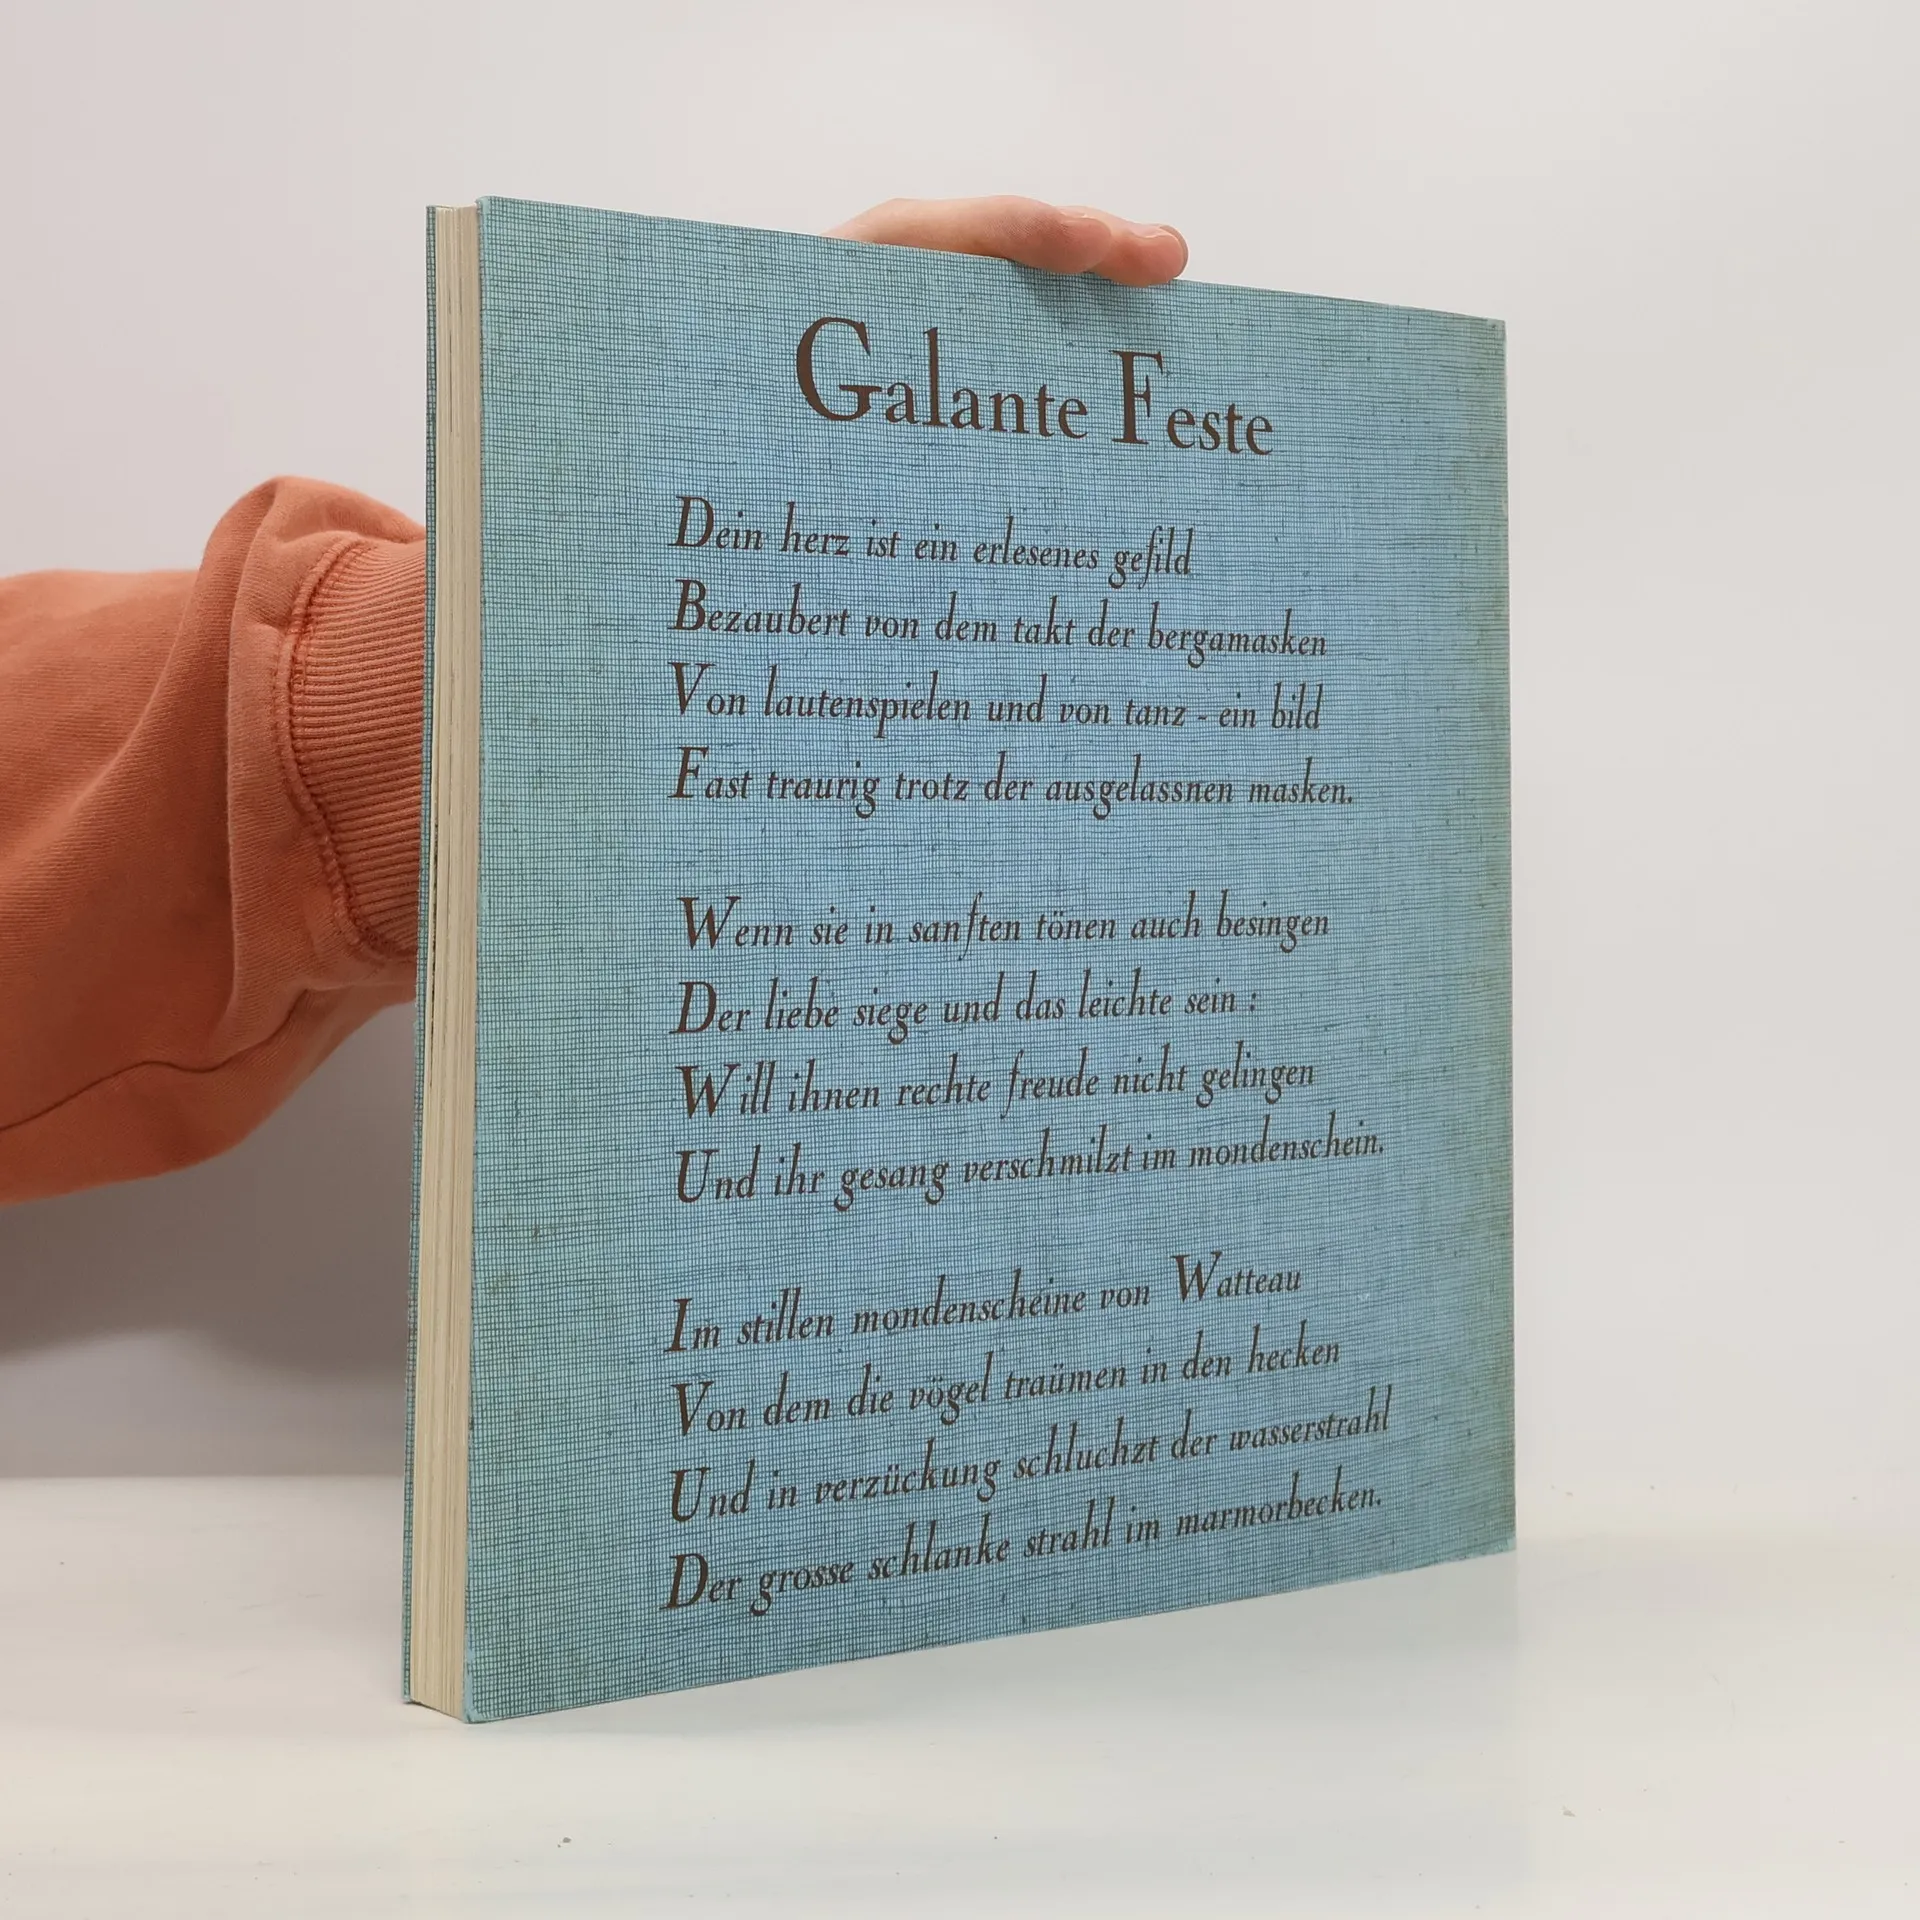 Galante Feste
Dein herz ist ein erlesenes gefild
Bezaubert von dem takt der bergamasken
Von lautenspielen und von tanz - ein bild
Fast traurig trotz der ausgelassnen masken.
Wenn sie in sanften tönen auch besingen
Der liebe siege und das leichte sein :
Will ihnen rechte freude nicht gelingen
Und ihr gesang verschmilzt im mondenschein.
Im stillen mondenscheine von Watteau
Von dem die vögel traümen in den hecken
Und in verzückung schluchzt der wasserstrahl
Der grosse schlanke strahl im marmorbecken.